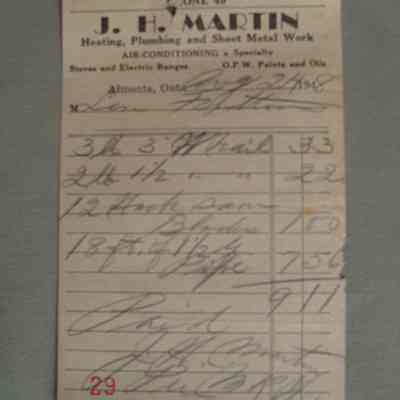 J. H. MARTIN
Heating, Plumbing and Sheet Metal Work
AIR-CONDITIONING a Specialty
Stoves and Electric Ranges O.P.W. Paints and Oils
Almonte, Ont. Aug 24 1948
M
3 lb 3" nails 33
2 lb 1 1/2 " " 22
12 Hack saw
Blades 1 00
18 ft of 1 1/2
Pipe 7 56
9 11
Paid
J. H. Martin
29